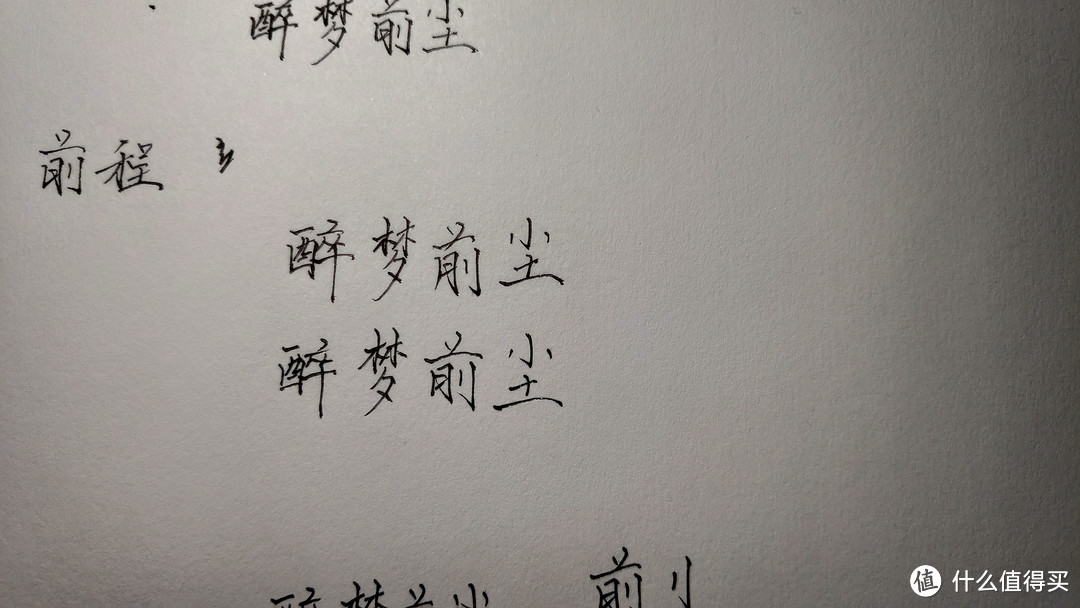 醉梦前尘
前程
醉梦前尘
醉梦前尘
醉梦前尘 前刂
值 什么值得买